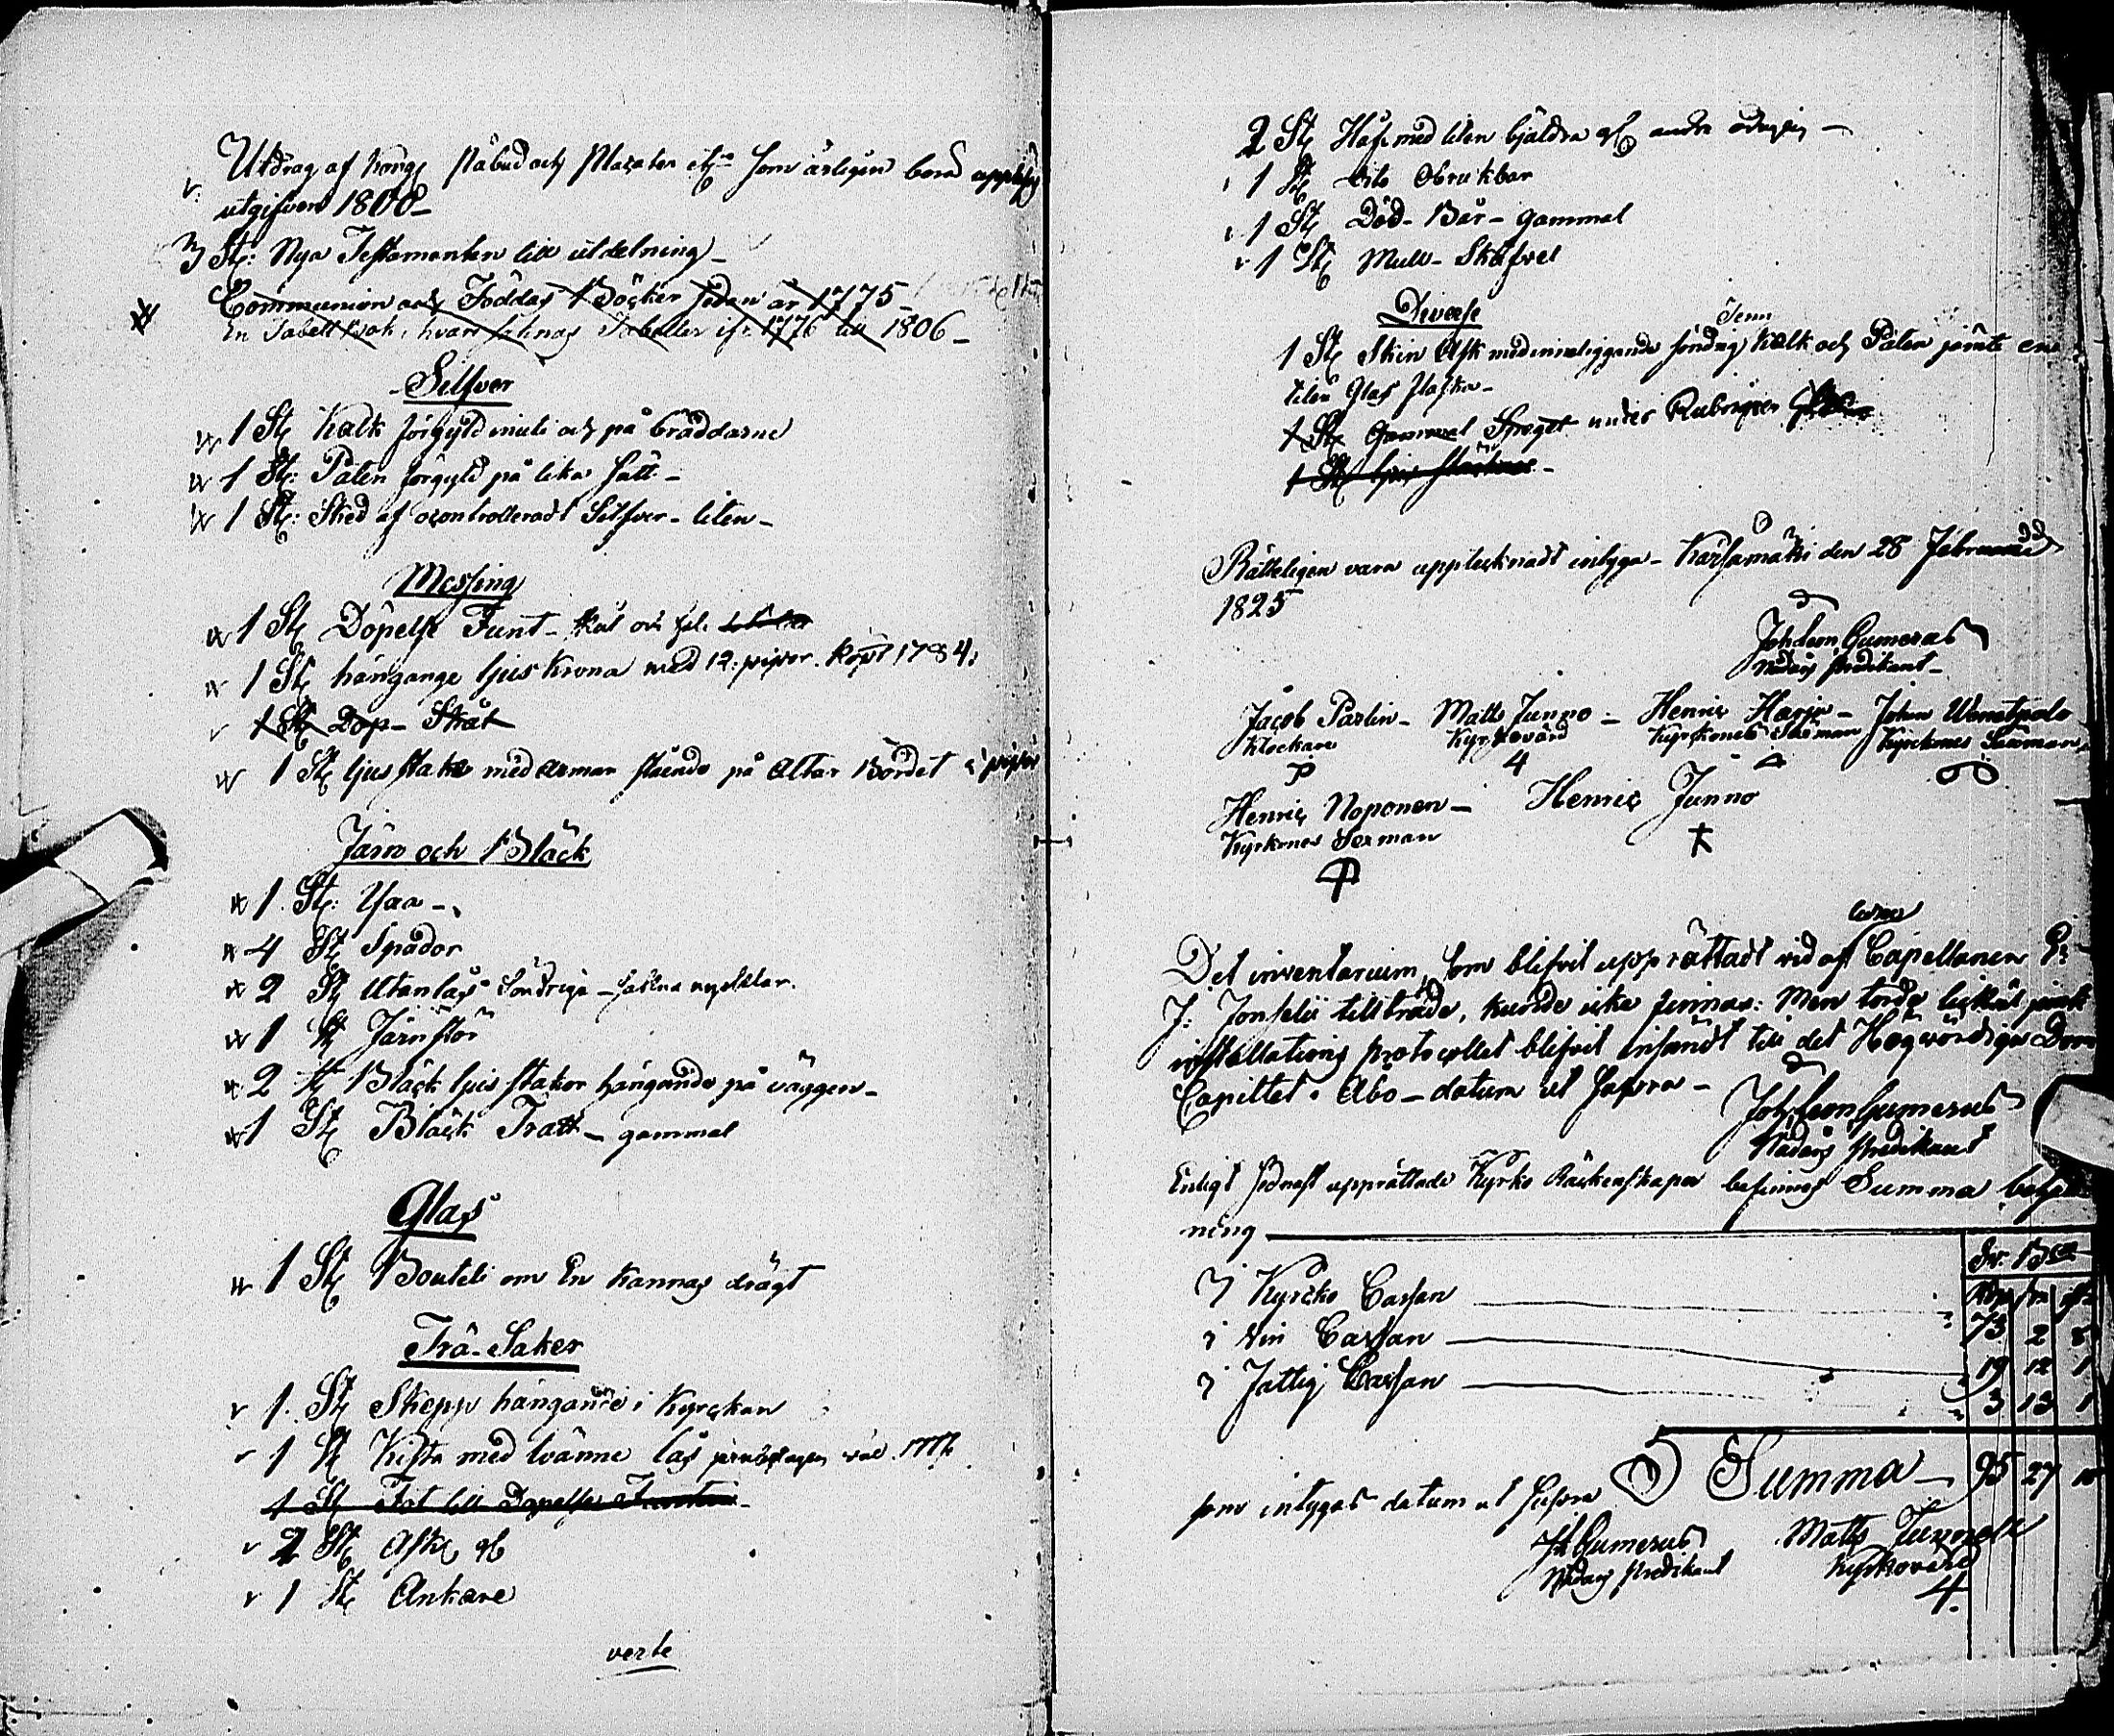 Utdrag af Kongl Påbud och Placater som årligen böra uppläsas
utgifven 1800 –
3 St: Nya Testamenten till utdelning –
Communion och Föddas Böcker sedan år 1775 –
En Tabell bok, hvari finnas Tabeller ifr: 1776 till 1806 –
Silfver
1 St Kalk förgyld inuti och på bräddarne
1 St: Paten förgyld på lika sätt –
1 St: Sked af ocontrolleradt Silfver – liten –
Messing
1 St Döpelse Funt – skål och
1 St hängange ljus Krona med 12: pipor. köpt 1784;
1 St Döp – Skål
1 St ljus stake med armar stående på Altar Bordet 2 pipor
Järn och Bläck
1. St: Yxa –
4 St Spador
2 St Utanlås Söndriga – sakna nycklar.
1 St Järnstör
2 St Bläck ljus stakar hängande på väggen –
1 St Bläck Tratt – gammal
Glas
1 St Bouteli om En Kannas drägt
Trä-Saker
1. St Skepp hängande i Kyrckan
1 St Kista med tvänne lås
1 St Fat till Döpelse Funten –
2 St Ask
1 St Ankare
verte
2 St Håf med liten bjäldra andra oduglig –
1 St dito Obrukbar
1 St Död – Bår – gammal
1 St Mull – Skåfvel
Diverse
Tenn
1 St Skin Ask med inneliggande söndrig Kalk och Paten jämte en
liten Glas flaska –
1 St Gammal Spöget under Rubriquen
1 St
Rätteligen vara upptecknadt intyga – Kärsämäki den 28 Februarii
1825
Joh Leon Gumerus
Nådårs Predikant –
Jacob Parlin – Matts Junno – Henric Harju – Johan
Klockare Kyrkovärd Kyrkones Sexman Kyrckones Sexman
4
Henric Noponen – Henric Junno
Kyrkones Sexman
Det inventarium, som blifvit upprättadt vid afl Capellanen
J: Jonselii tillträde, kunde icke finnas: Men torde
installations protocollet blifvit insändt till det Högvördiga Dom
Capitlet i Åbo – datum ut supra –
Joh Leon Gumerus
Nådårs Predikant
Enligt sednast upprättade Kyrko Räckenskaper befinnes Summa behåll
ning
i Kyrcko Cassan 73 2
i Vin Cassan 19 12 1
i Fattig Cassan 3 13 1
Summa – 95 27
som intygas datum ut supra
JL Gumerus Matts
Nådårs Predikant Kyrkovärd
4.